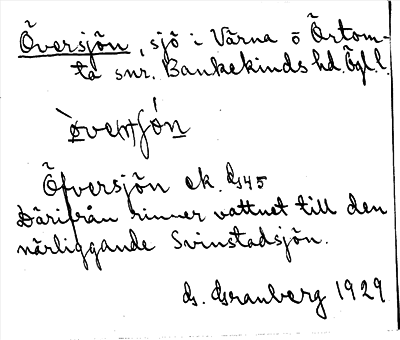 Översjön, sjö i Värna o Örtom-
ta snr. Bankekinds hd. Ögl. l.
Öfversjön ek. ds45
Därifrån rinner vattnet till den
närliggande Svinstadsjön.
G. Granberg 1929